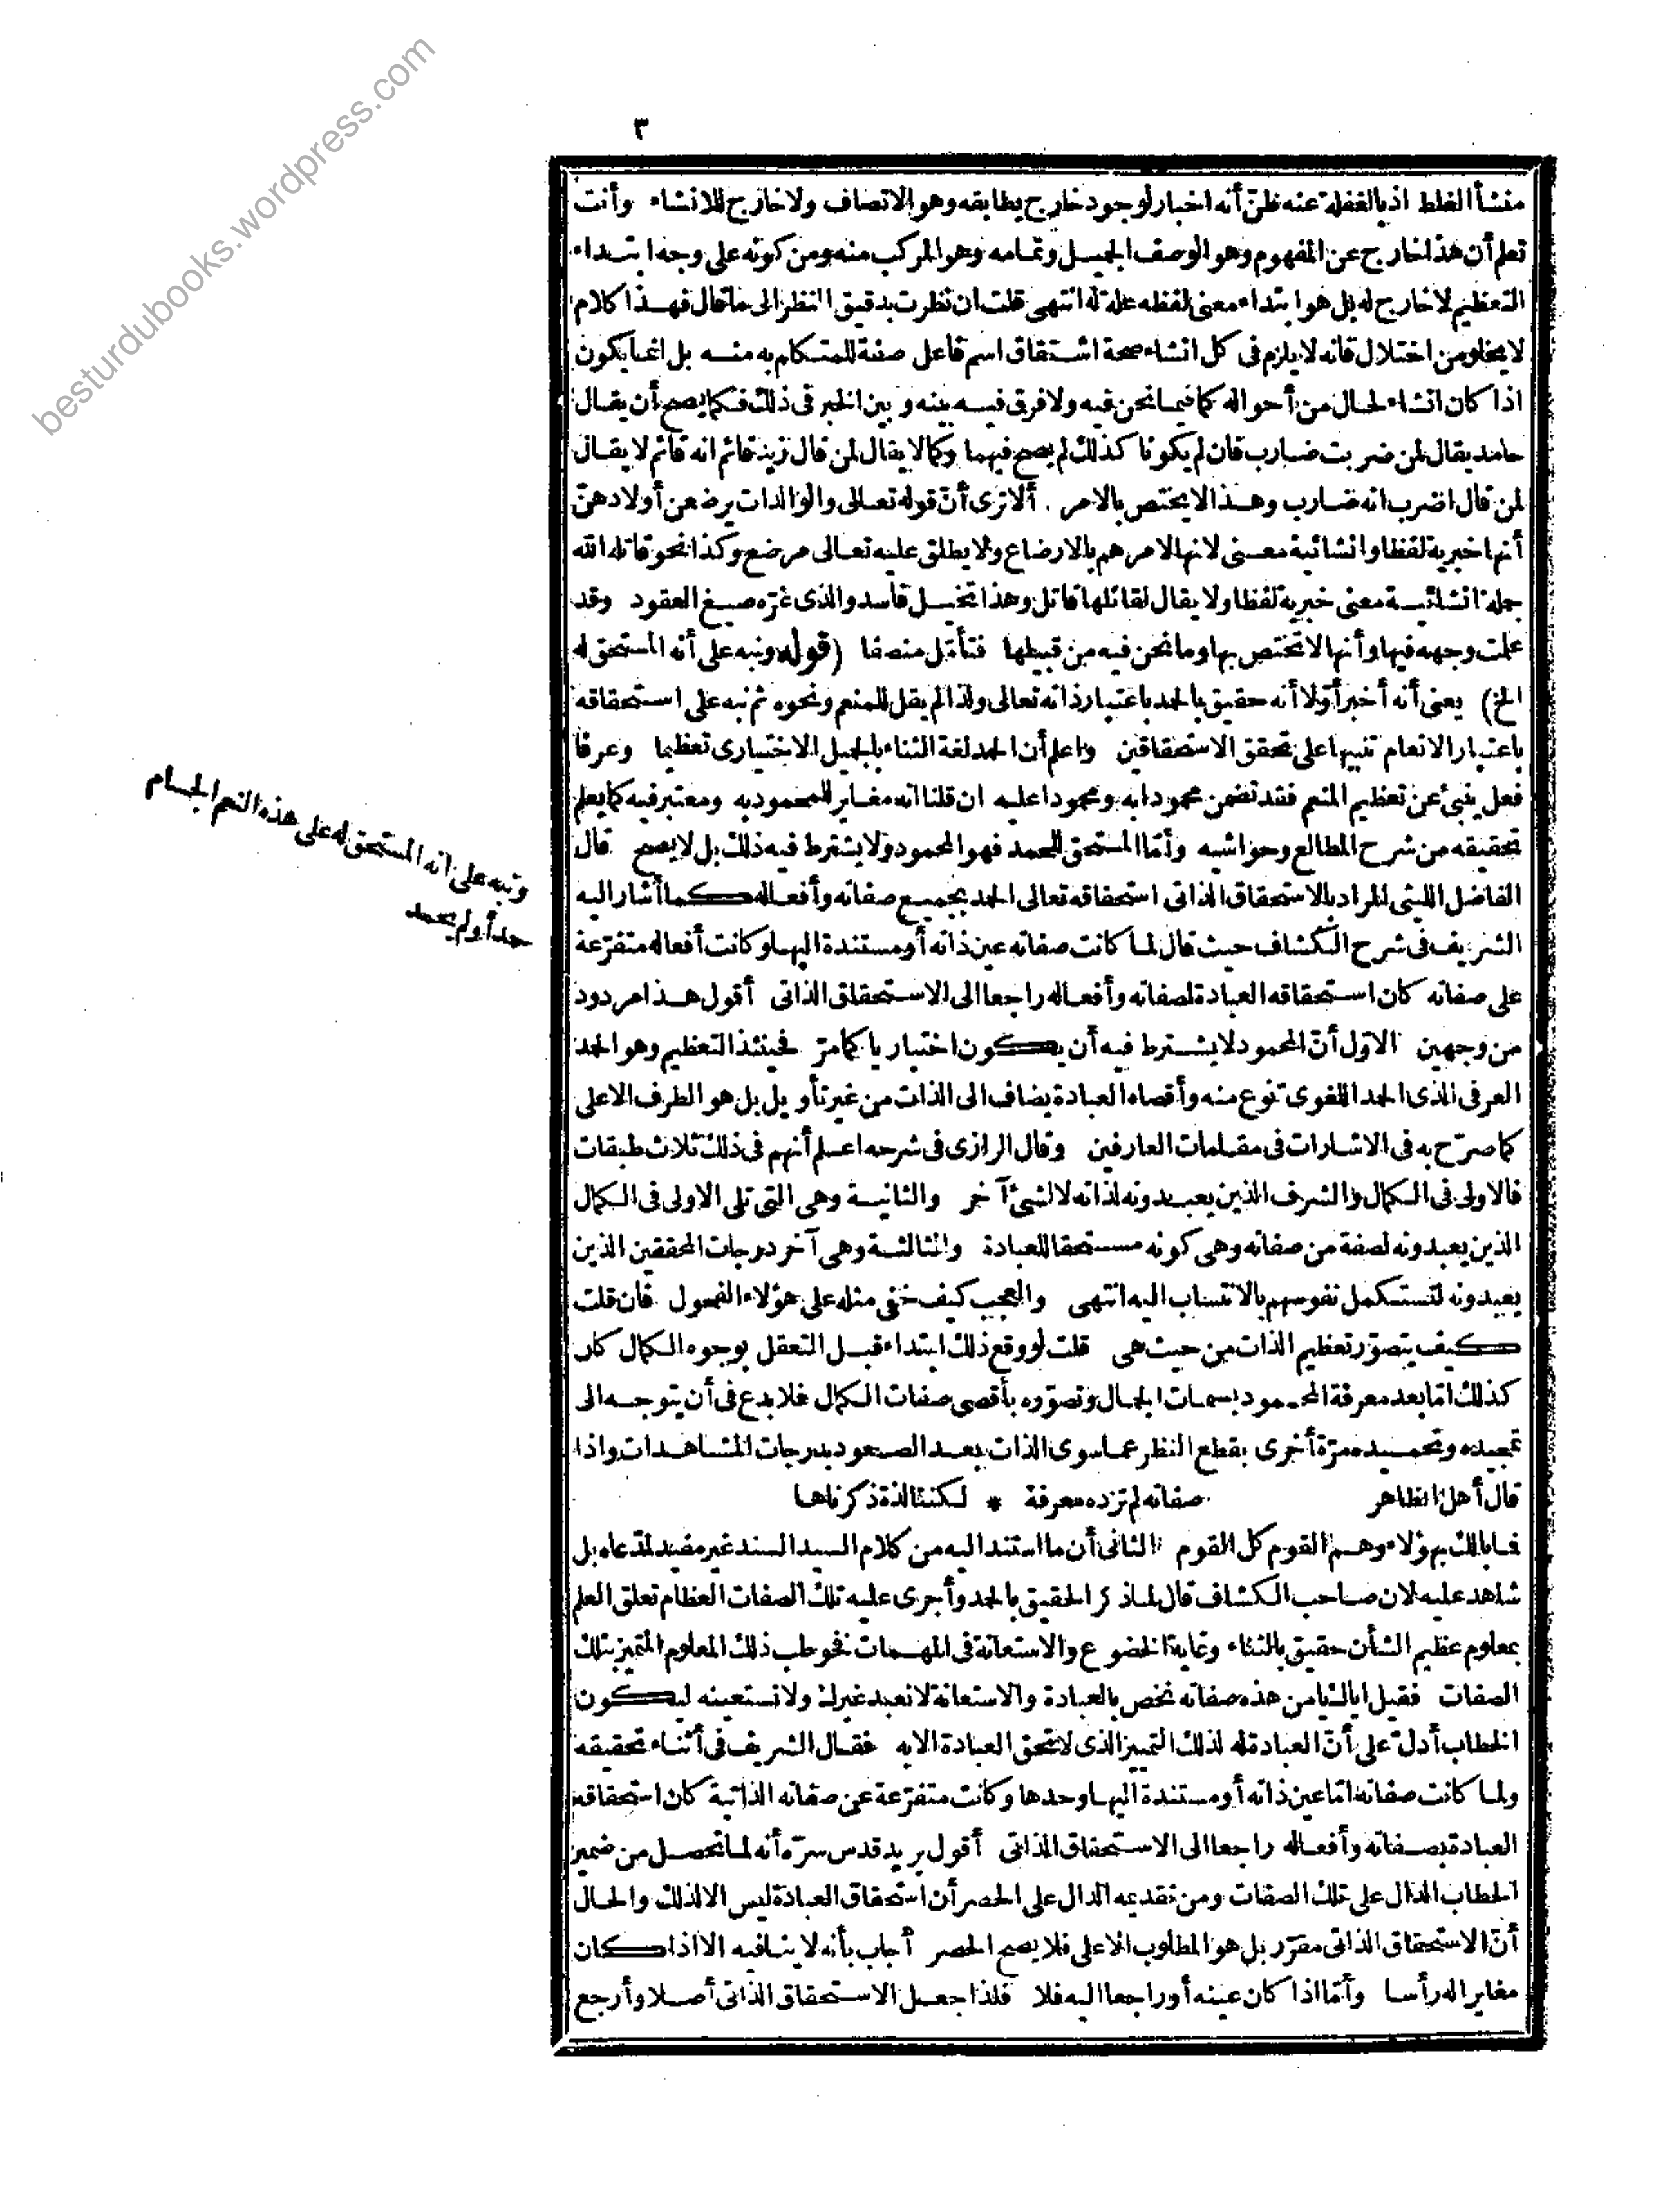 ٣
منشأ الغلط اذ بالغفلة عنه ظن أنه اخبار لوجود خارج يطابقه وهو الاتصاف ولا خارج للانشاء وأنت
تعلم أن هذا خارج عن المفهوم وهو الوصف الجميل وتمامه وهو المركب منه ومن كونه على وجه ابتداء
التعظيم لا خارج له بل هو ابتداء معنى لفظه علة له انتهى قلت ان نظرت بدقيق النظر الى ما قال فهذا كلام
لا يخلو من اختلال فانه لا يلزم فى كل انشاء صحة اشتقاق اسم فاعل صفة للمتكلم به منه بل انما يكون
اذا كان انشاء لحال من أحواله كما فيما نحن فيه ولا فرق فيه بينه وبين الخبر فى ذلك فكما يصح أن يقال
حامد يقال لمن ضربت ضارب فان لم يكونا كذلك لم يصح فيهما وكما لا يقال لمن قال زيد قائم انه قائم لا يقال
لمن قال اضرب انه ضارب وهذا لا يختص بالامر . ألا ترى أنّ قوله تعالى والوالدات يرضعن أولادهنّ
أنها خبرية لفظا وانشائية معنى لانها لامرهم بالارضاع ولا يطلق عليه تعالى مرضع وكذا نحو قاتله الله
جملة انشائية معنى خبرية لفظا ولا يقال لقائلها قاتل وهذا تخيل فاسد والذى غرّه صيغ العقود وقد
علمت وجهه فيها وأنها لا تختص بها وما نحن فيه من قبيلها فتأمّل منصفا (قوله ونبه على أنه المستحق له
الخ) يعنى أنه أخبر أوّلا أنه حقيق بالحمد باعتبار ذاته تعالى ولذا لم يقل للمنعم ونحوه ثم نبه على استحقاقه
باعتبار الانعام تنبيها على تحقق الاستحقاقين واعلم أن الحمد لغة الثناء بالجميل الاختيارى تعظيما وعرفا
فعل ينبئ عن تعظيم المنعم فقد تضمن محمودا به ومحمودا عليه ان قلنا انه مغاير للمحمود به ومعتبر فيه كما يعلم
تحقيقه من شرح المطالع وحواشيه وأمّا المستحق للحمد فهو المحمود ولا يشترط فيه ذلك بل لا يصح قال
الفاضل الليثى المراد بالاستحقاق الذاتى استحقاقه تعالى الحمد بجميع صفاته وأفعاله كما أشار اليه
الشريف فى شرح الكشاف حيث قال لما كانت صفاته عين ذاته أو مستندة اليها وكانت أفعاله متفرّعة
على صفاته كان استحقاقه العبادة لصفاته وأفعاله راجعا الى الاستحقاق الذاتى أقول هذا مردود
من وجهين الاوّل أنّ المحمود لا يشترط فيه أن يكون اختياريا كما مرّ فحينئذ التعظيم وهو الحمد
العرفى الذى الحمد اللغوى نوع منه وأقصاه العبادة يضاف الى الذات من غير تأويل بل هو الطرف الاعلى
كما صرّح به فى الاشارات فى مقامات العارفين وقال الرازى فى شرحه اعلم أنهم فى ذلك ثلاث طبقات
فالاولى فى الكمال والشرف الذين يعبدونه لذاته لا لشئ آخر والثانية وهى التى تلى الاولى فى الكمال
الذين يعبدونه لصفة من صفاته وهى كونه مستحقا للعبادة والثالثة وهى آخر درجات المحققين الذين
يعبدونه لتستكمل نفوسهم بالانتساب اليه انتهى والعجب كيف خفى مثله على هؤلاء الفحول فان قلت
كيف يتصوّر تعظيم الذات من حيث هى قلت لو وقع ذلك ابتداء قبل التعقل بوجوه الكمال كان
كذلك امّا بعد معرفة المحمود بسمات الجمال وتصوّره بأقصى صفات الكمال فلا بدع فى أن يتوجه الى
تمجيده وتحميده مرّة أخرى بقطع النظر عما سوى الذات بعد الصعود بدرجات المشاهدات واذا
قال أهل الظاهر صفاته لم تزده معرفة * لكننا لذة ذكرناها
فما بالك بهؤلاء وهم القوم كل القوم الثانى أن ما استند اليه من كلام السيد السند غير مفيد لمدّعاه بل
شاهد عليه لان صاحب الكشاف قال لما ذكر الحقيق بالحمد وأجرى عليه تلك الصفات العظام تعلق العلم
بمعلوم عظيم الشأن حقيق بالثناء وغاية الخضوع والاستعانة فى المهمات فخوطب ذلك المعلوم المتميز بتلك
الصفات فقيل اياك يا من هذه صفاته نخص بالعبادة والاستعانة لا نعبد غيرك ولا نستعينه ليكون
الخطاب أدلّ على أنّ العبادة له لذلك التميز الذى لا تحق العبادة الا به فقال الشريف فى أثناء تحقيقه
ولما كانت صفاته امّا عين ذاته أو مستندة اليها وحدها وكانت متفرّعة عن صفاته الذاتية كان استحقاقه
العبادة بصفاته وأفعاله راجعا الى الاستحقاق الذاتى أقول يريد قدس سرّه أنه لما تحصل من ضمير
الخطاب الدال على تلك الصفات ومن تقديمه الدال على الحصر أن استحقاق العبادة ليس الا لذلك والحال
أنّ الاستحقاق الذاتى مقرّر بل هو المطلوب الاعلى فلا يصح الحصر أجاب بأنه لا ينافيه الا اذا كان
مغايرا له رأسا وأمّا اذا كان عينه أو راجعا اليه فلا فلذا جعل الاستحقاق الذاتى أصلا وأرجع
ونبه على انه المستحق له على هذه النعم الجسام
حمد أو لم يحمد
besturdubooks.wordpress.com